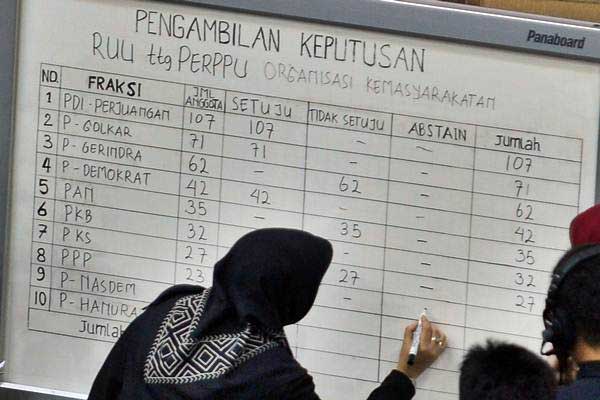 Panaboard
PENGAMBILAN KEPUTUSAN
RUU ttg PERPPU ORGANISASI KEMASYARAKATAN
NO. FRAKSI JML ANGGOTA SETUJU TIDAK SETUJU ABSTAIN Jumlah
1 PDI-PERJUANGAN 107 107 – – 107
2 P-GOLKAR 71 71 – – 71
3 P-GERINDRA 62 – 62 – 62
4 P-DEMOKRAT 42 42 – – 42
5 PAN 35 – 35 – 35
6 PKB 32 – 32
7 PKS 27 27 – 27
8 PPP 23 –
9 P-NASDEM
10 P-HANURA
Jumlah